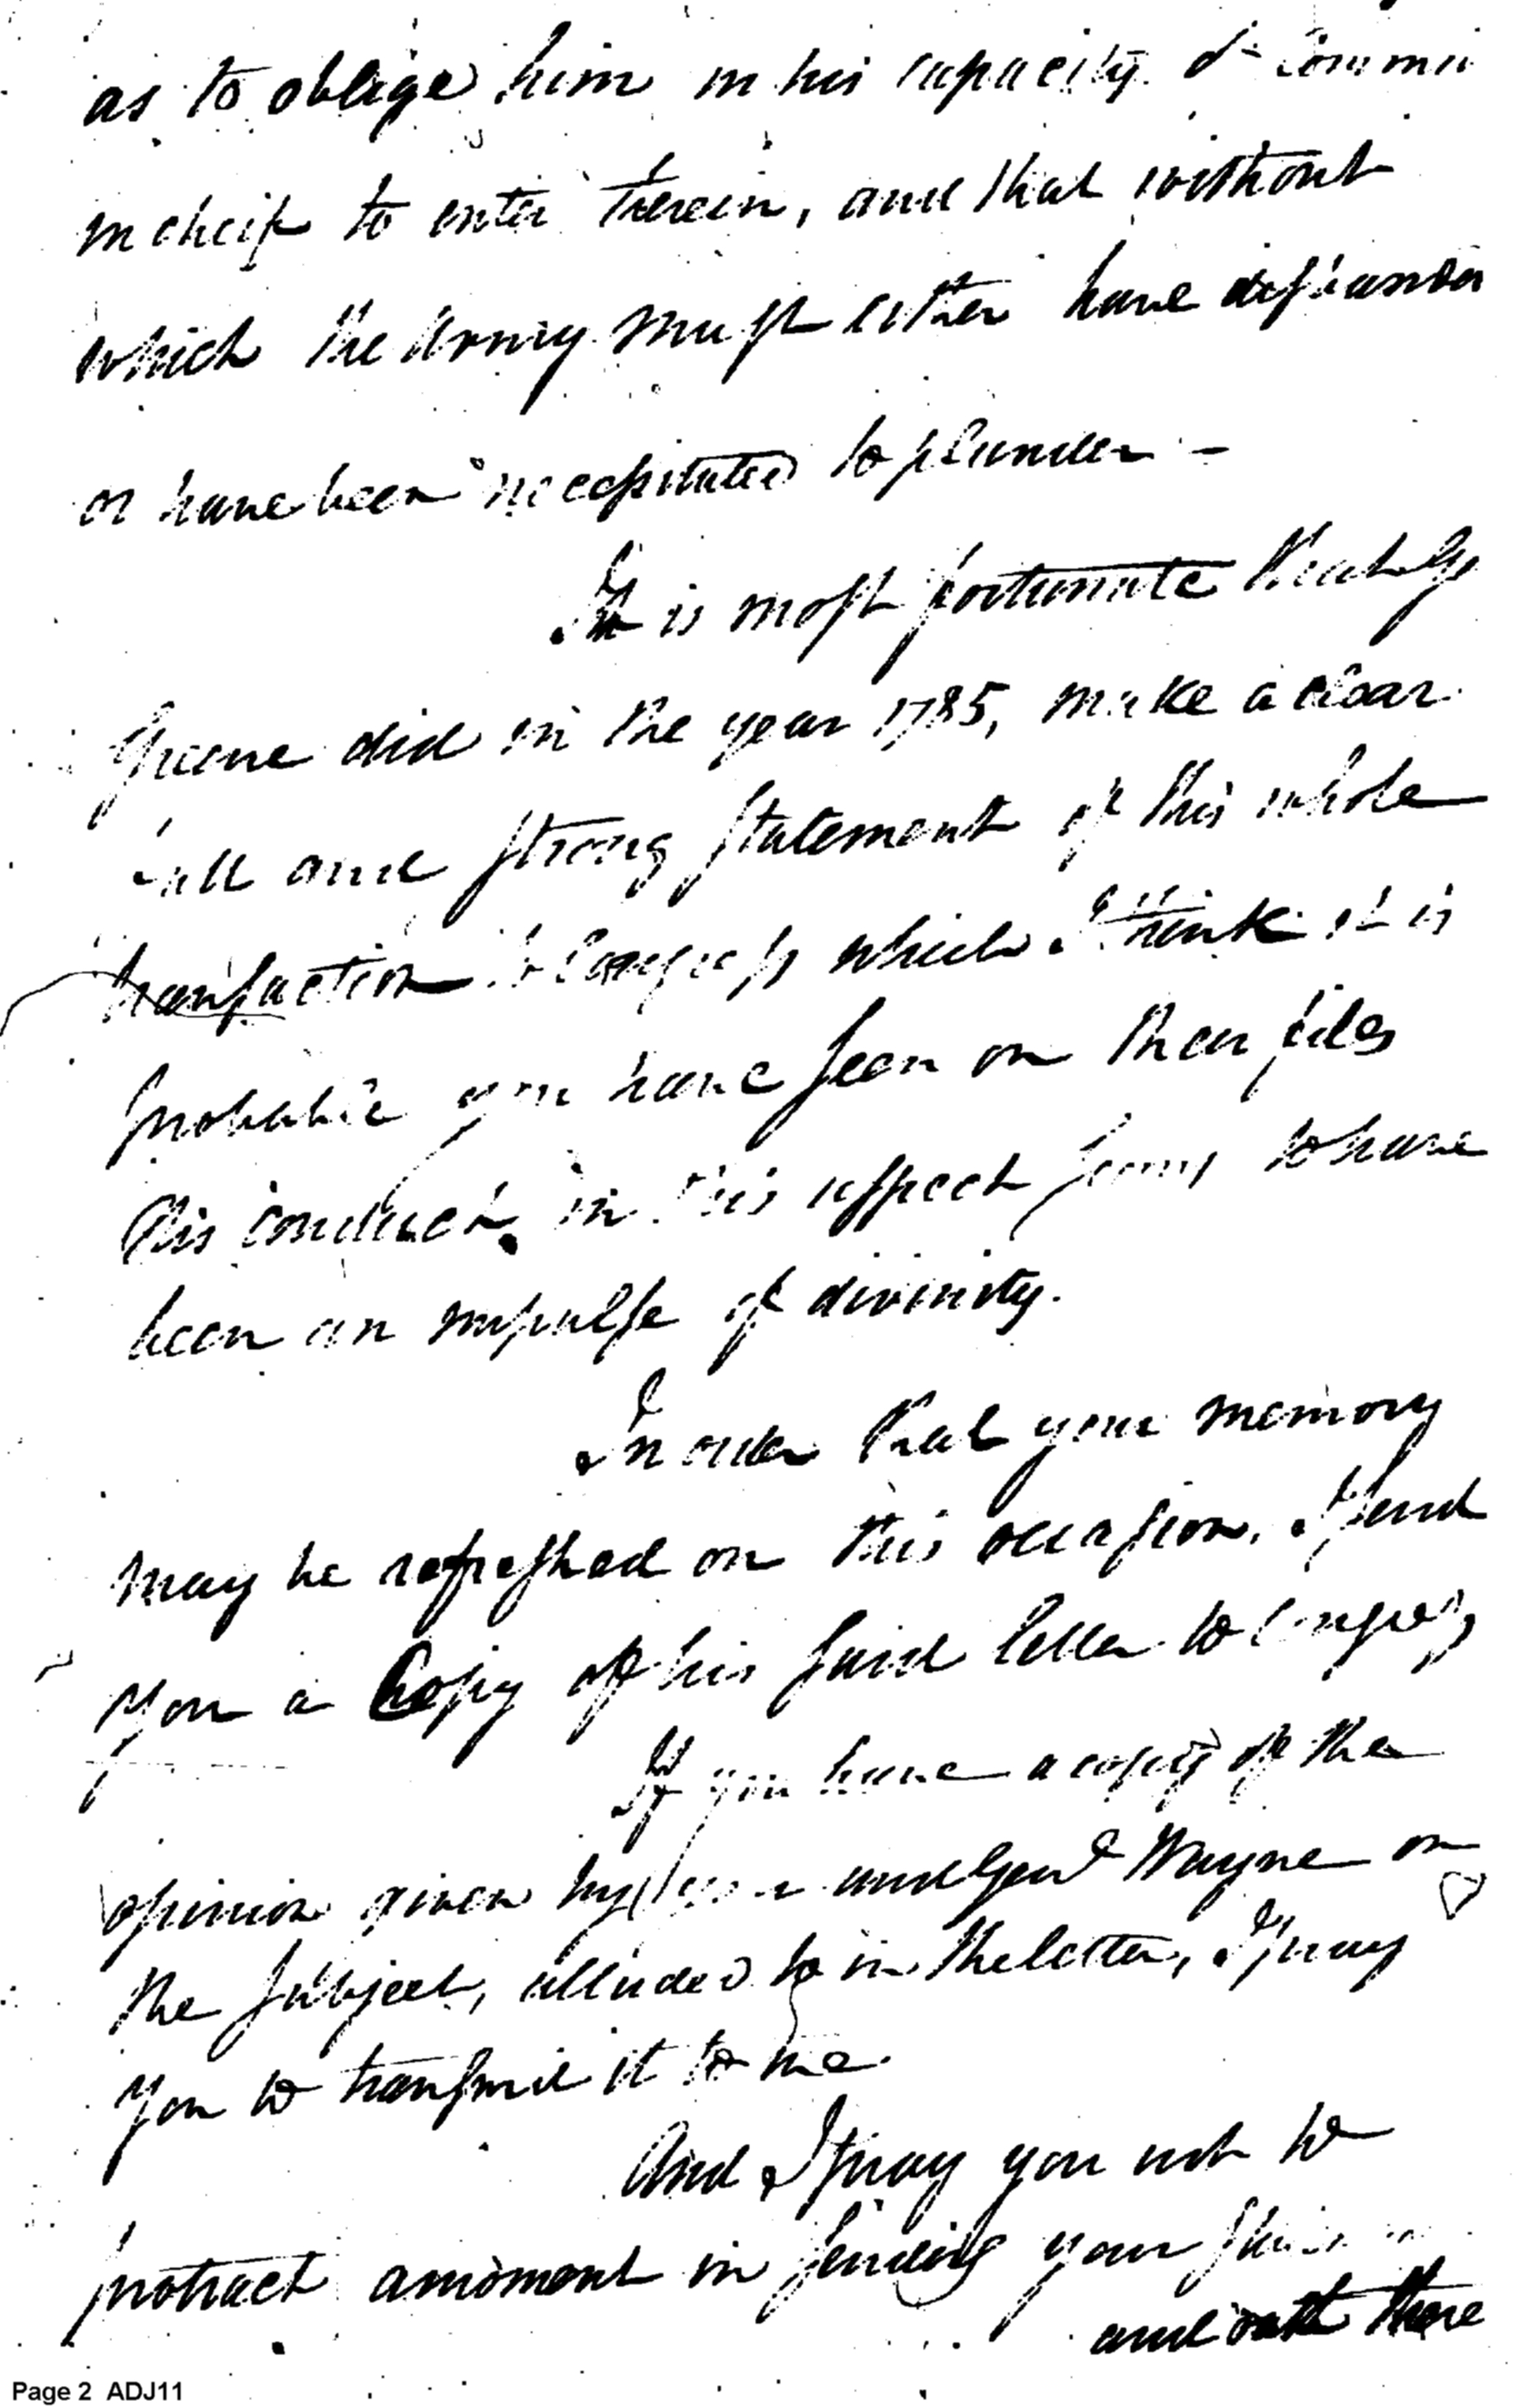 as to oblige him in his capacity of Comm
in cheif to enter therein, and that without
which the Army must either have disbanded
or have been necessitated to plunder —
It is most fortunate that Gl
Greene did in the year 1785, make a clear
full and strong statement of this whole
transaction to Congress which I think it is
probable you have seen on their files
His conduct in this respect seems to have
been an impulse of divinity.
In order that your memory
may be refreshed on this occasion, I send
you a Copy of his said letter to Congress
If you have a copy of the
opinion given by and Genl Wayne on
the subject, alluded to in the letter, I pray
you to transmit it to me.
And I pray you not to
protract a moment in sending your
and oath there
Page 2 ADJ11